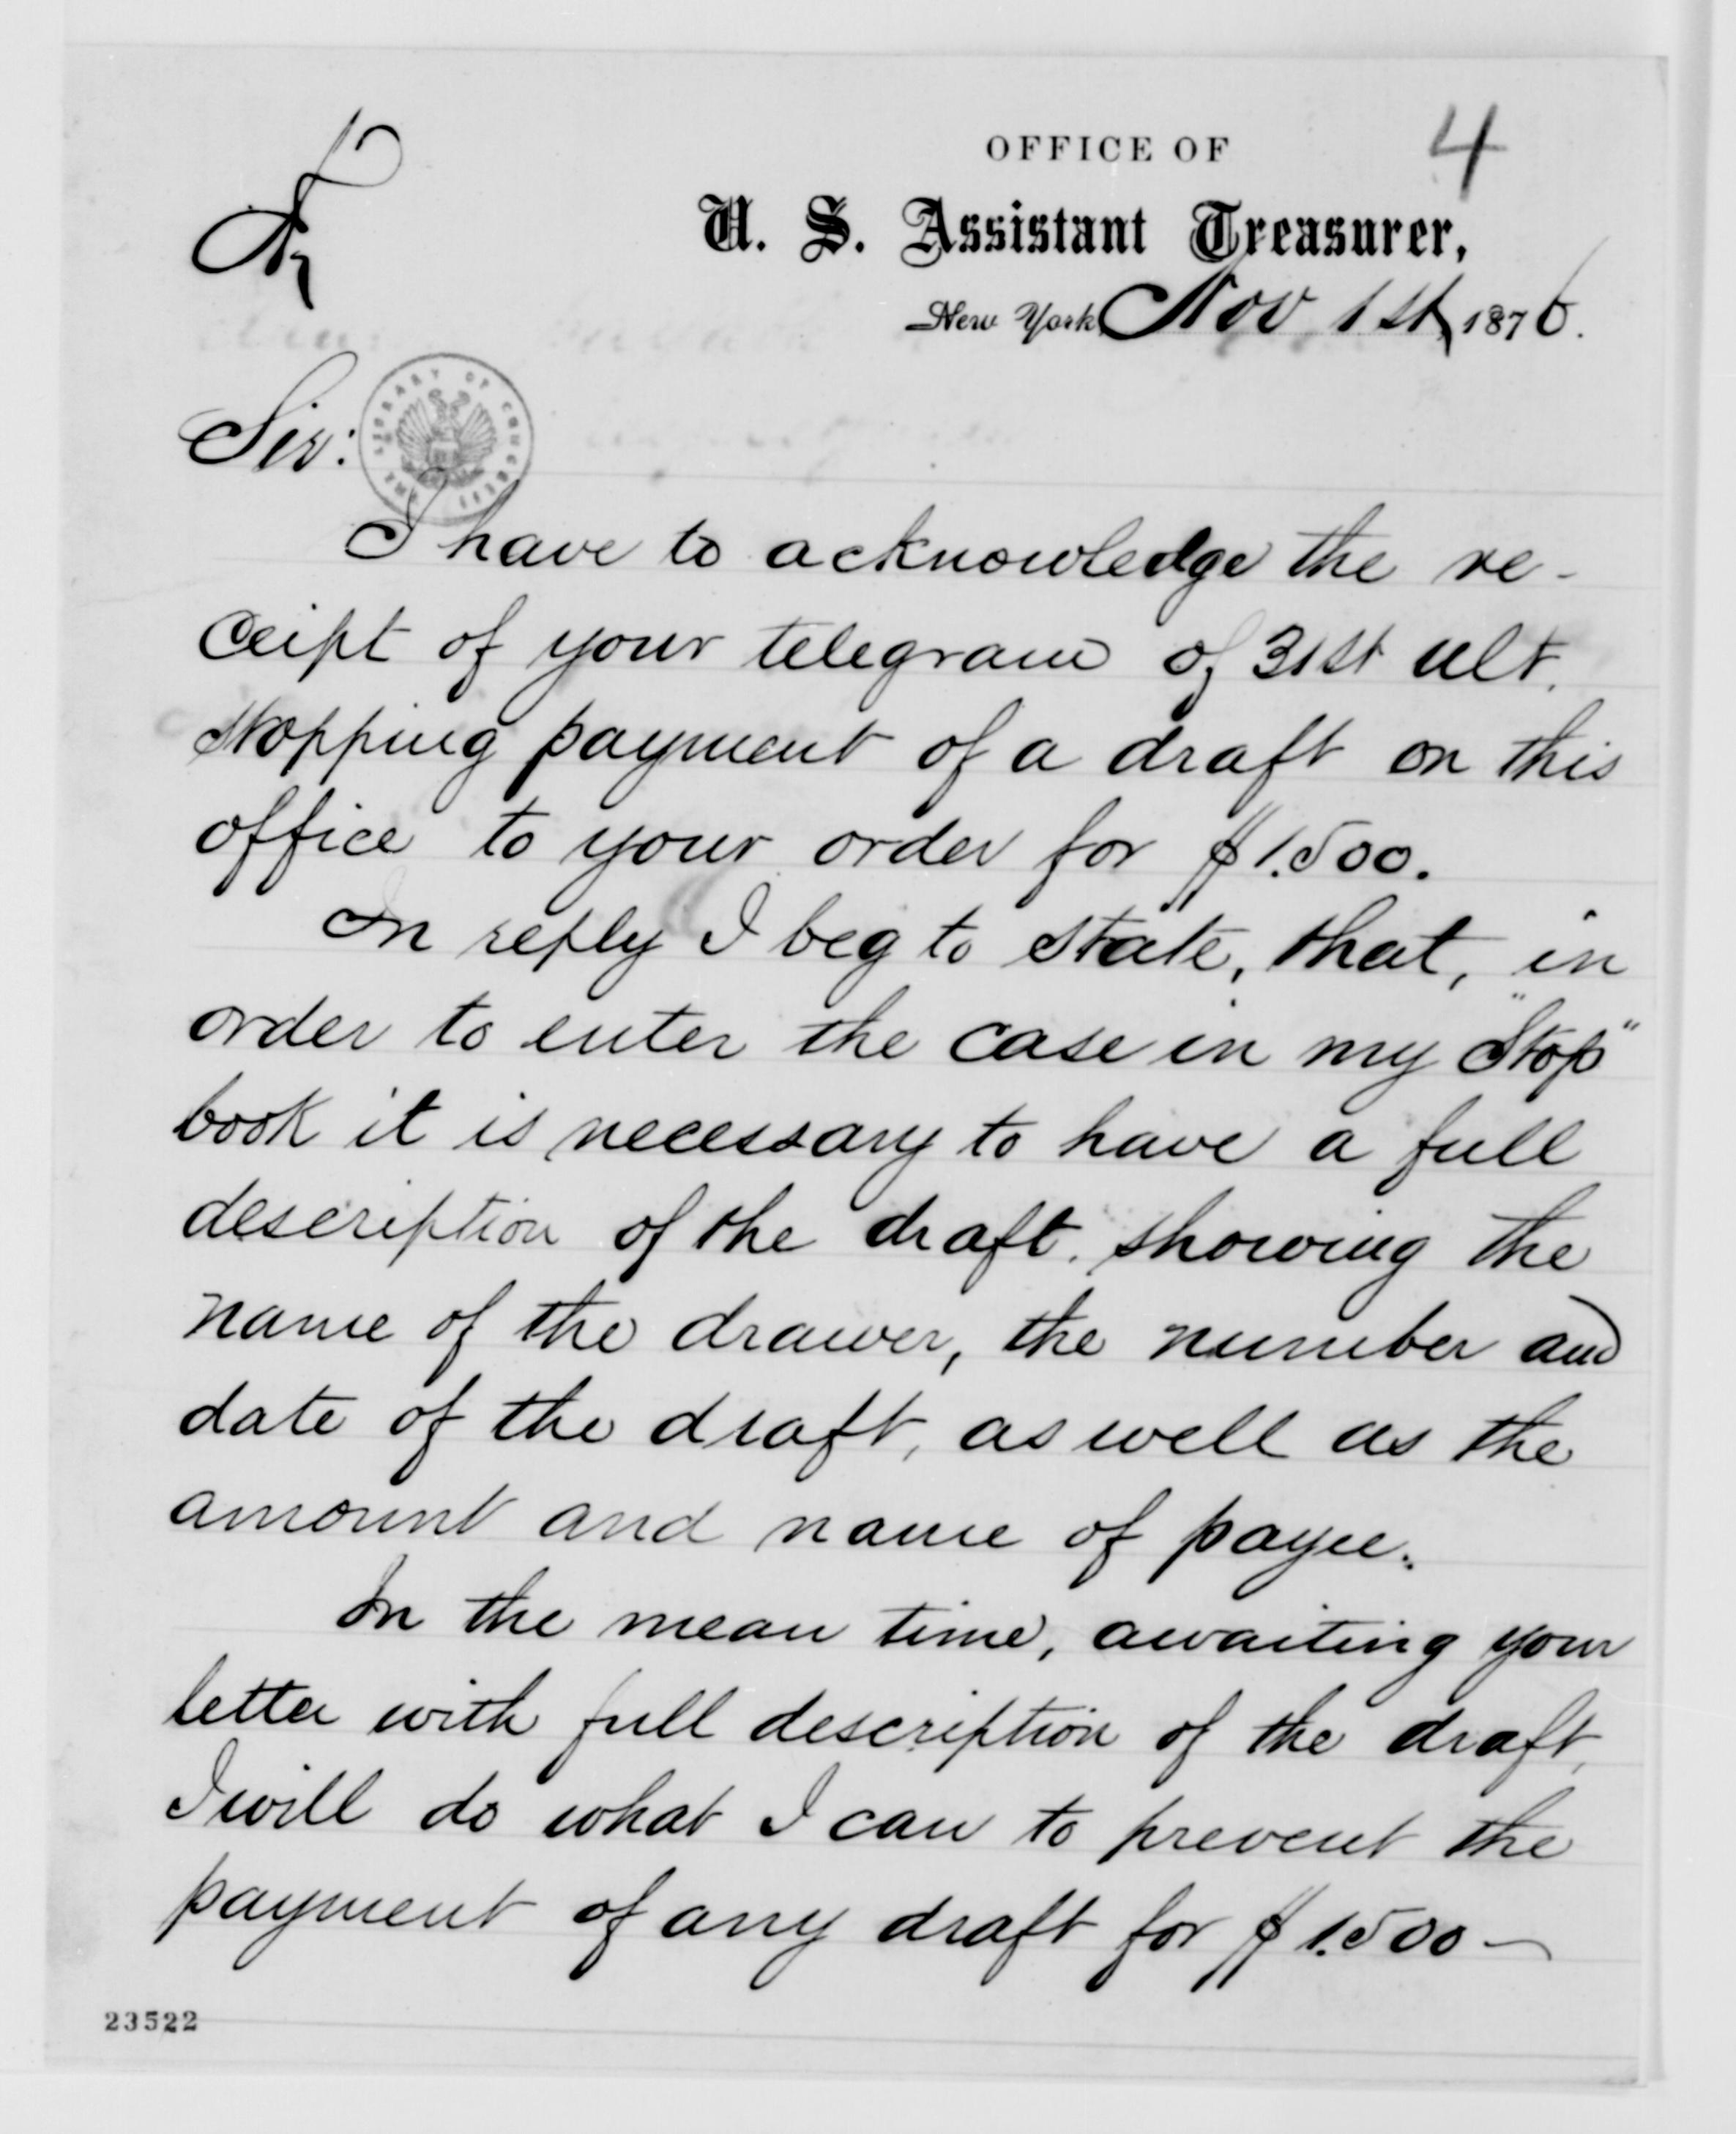 4
OFFICE OF
U. S. Assistant Treasurer,
New York, Nov 1st, 1876.
Sir:
THE LIBRARY OF CONGRESS
I have to acknowledge the re-
ceipt of your telegram of 31st ult.
stopping payment of a draft on this
office to your order for $1.500.
In reply I beg to state, that, in
order to enter the case in my "Stop"
book it is necessary to have a full
description of the draft. showing the
name of the drawer, the number and
date of the draft, as well as the
amount and name of payee.
In the mean time, awaiting your
letter with full description of the draft,
I will do what I can to prevent the
payment of any draft for $1.500—
23522